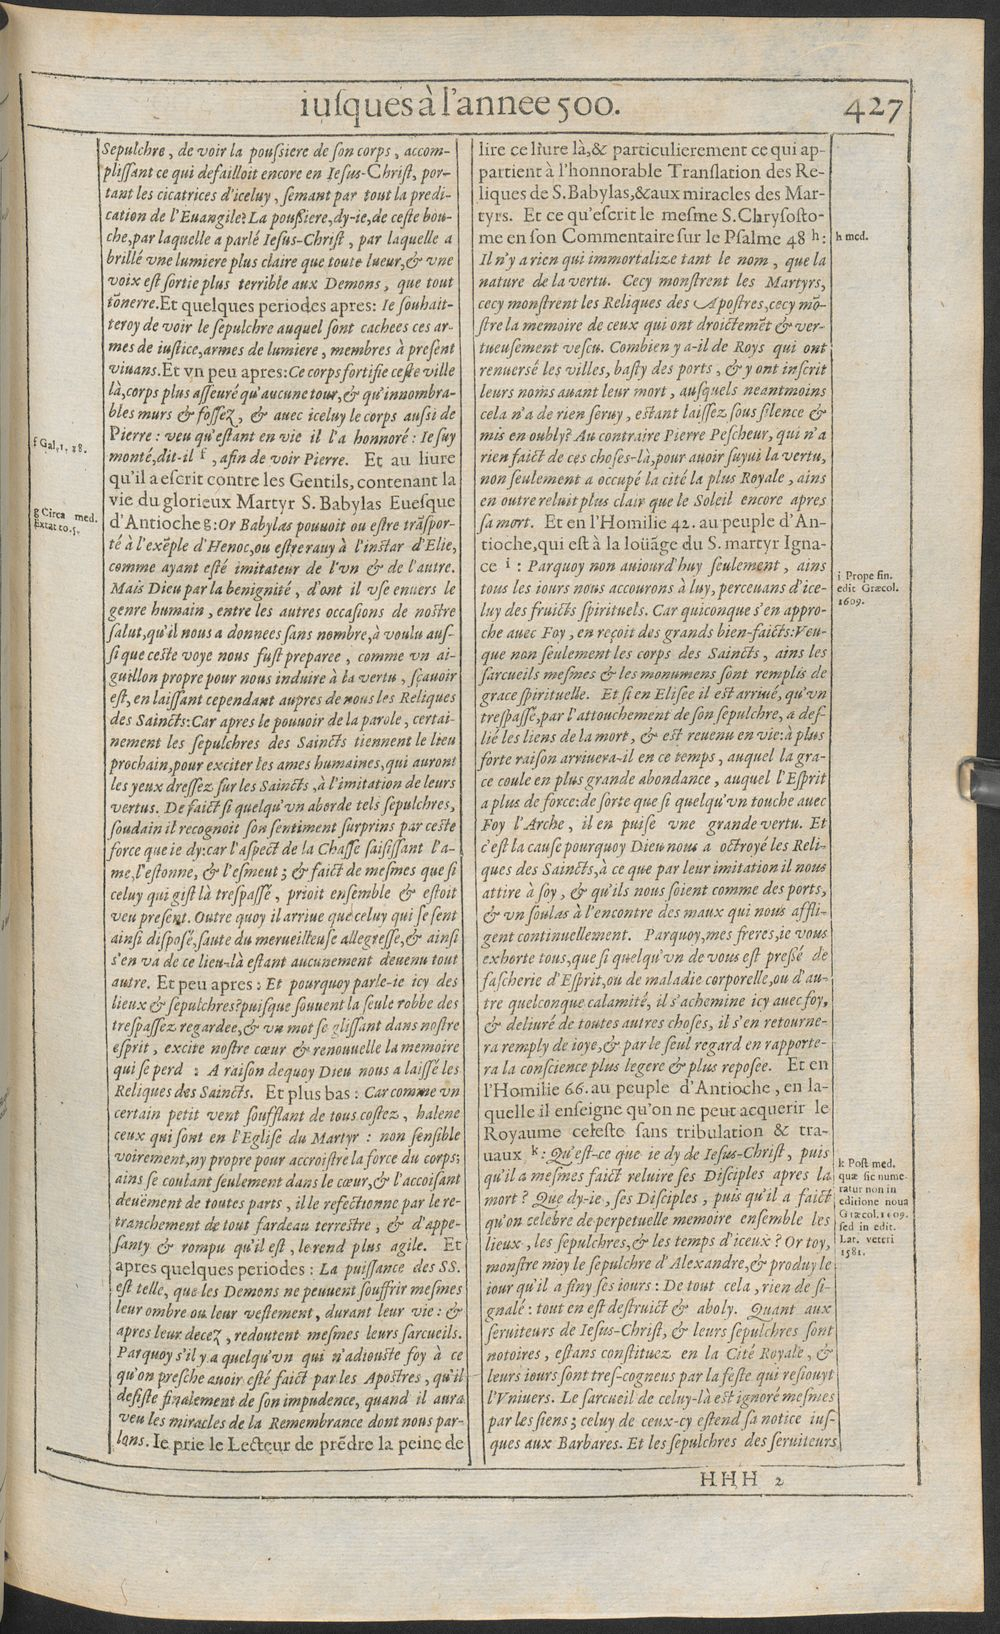 iusques à l'annee 500.
427
Sepulchre, de voir la poussiere de son corps, accom-
plissant ce qui defailloit encore en Iesus-Christ, por-
tant les cicatrices d'iceluy, semant par tout la predi-
cation de l'Euangile? La poussiere, dy-ie, de ceste bou-
che, par laquelle a parlé Iesus-Christ, par laquelle a
brillé vne lumiere plus claire que toute lueur, & vne
voix est sortie plus terrible aux Demons, que tout
tõnerre. Et quelques periodes apres: Ie souhait-
teroy de voir le sepulchre auquel sont cachees ces ar-
mes de iustice, armes de lumiere, membres à present
viuans. Et vn peu apres: Ce corps fortifie ceste ville
là, corps plus asseuré qu'aucune tour, & qu'innombra-
bles murs & fossez, & auec iceluy le corps aussi de
Pierre: veu qu'estant en vie il l'a honnoré: Ie suy
monté, dit-il f, afin de voir Pierre. Et au liure
qu'il a escrit contre les Gentils, contenant la
vie du glorieux Martyr S. Babylas Euesque
d'Antioche g: Or Babylas pouuoit ou estre trãspor-
té à l'exẽple d'Henoc, ou estre rauy à l'instar d'Elie,
comme ayant esté imitateur de l'vn & de l'autre.
Mais Dieu par la benignité, d'ont il vse enuers le
genre humain, entre les autres occasions de nostre
salut, qu'il nous a donnees sans nombre, à voulu aus-
si que ceste voye nous fust preparee, comme vn ai-
guillon propre pour nous induire à la vertu, sçauoir
est, en laissant cependant aupres de nous les Reliques
des Saincts: Car apres le pouuoir de la parole, certai-
nement les sepulchres des Saincts tiennent le lieu
prochain, pour exciter les ames humaines, qui auront
les yeux dressez sur les Saincts, à l'imitation de leurs
vertus. De faict si quelqu'vn aborde tels sepulchres,
soudain il recognoit son sentiment surprins par ceste
force que ie dy: car l'aspect de la Chasse saisissant l'a-
me, l'estonne, & l'esmeut; & faict de mesmes que si
celuy qui gist là trespassé, prioit ensemble & estoit
veu present. Outre quoy il arriue que celuy qui se sent
ainsi disposé, saute du merueilleuse allegresse, & ainsi
s'en va de ce lieu-là estant aucunement deuenu tout
autre. Et peu apres: Et pourquoy parle-ie icy des
lieux & sepulchres? puisque souuent la seule robbe des
trespassez regardee, & vn mot se glissant dans nostre
esprit, excite nostre cœur & renouuelle la memoire
qui se perd : A raison dequoy Dieu nous a laissé les
Reliques des Saincts. Et plus bas: Car comme vn
certain petit vent soufflant de tous costez, halene
ceux qui sont en l'Eglise du Martyr: non sensible
voirement, ny propre pour accroistre la force du corps;
ains se coulant seulement dans le cœur, & l'accoisant
deuëment de toutes parts, il le refectionne par le re-
tranchement de tout fardeau terrestre, & d'appe-
santy & rompu qu'il est, le rend plus agile. Et
apres quelques periodes: La puissance des SS.
est telle, que les Demons ne peuuent souffrir mesmes
leur ombre ou leur vestement, durant leur vie: &
apres leur decez, redoutent mesmes leurs sarcueils.
Parquoy s'il y a quelqu'vn qui n'adiouste foy à ce
qu'on presche auoir esté faict par les Apostres, qu'il
desiste finalement de son impudence, quand il aura
veu les miracles de la Remembrance dont nous par-
lons. Ie prie le Lecteur de prẽdre la peine de
f Gal, 1, 18.
g Circa med.
Extat to. 5.
lire ce liure là, & particulierement ce qui ap-
partient à l'honnorable Translation des Re-
liques de S. Babylas, & aux miracles des Mar-
tyrs. Et ce qu'escrit le mesme S. Chrysosto-
me en son Commentaire sur le Psalme 48 h:
Il n'y a rien qui immortalize tant le nom, que la
nature de la vertu. Cecy monstrent les Martyrs,
cecy monstrent les Reliques des Apostres, cecy mõ-
stre la memoire de ceux qui ont droictemẽt & ver-
tueusement vescu. Combien y a-il de Roys qui ont
renuersé les villes, basty des ports, & y ont inscrit
leurs noms auant leur mort, ausquels neantmoins
cela n'a de rien seruy, estant laissez sous silence &
mis en oubly? Au contraire Pierre Pescheur, qui n'a
rien faict de ces choses-là, pour auoir suyui la vertu,
non seulement a occupé la cité la plus Royale, ains
en outre reluit plus clair que le Soleil encore apres
sa mort. Et en l'Homilie 42. au peuple d'An-
tioche, qui est à la loüãge du S. martyr Igna-
ce i: Parquoy non auiourd'huy seulement, ains
tous les iours nous accourons à luy, perceuans d'ice-
luy des fruicts spirituels. Car quiconque s'en appro-
che auec Foy, en reçoit des grands bien-faicts: Veu-
que non seulement les corps des Saincts, ains les
sarcueils mesmes & les monumens sont remplis de
grace spirituelle. Et si en Elisee il est arriué, qu'vn
trespassé, par l'attouchement de son sepulchre, a des-
lié les liens de la mort, & est reuenu en vie: à plus
forte raison arriuera-il en ce temps, auquel la gra-
ce coule en plus grande abondance, auquel l'Esprit
a plus de force: de sorte que si quelqu'vn touche auec
Foy l'Arche, il en puise vne grande vertu. Et
c'est la cause pourquoy Dieu nous a octroyé les Reli-
ques des Saincts, à ce que par leur imitation il nous
attire à soy, & qu'ils nous soient comme des ports,
& vn soulas à l'encontre des maux qui nous affli-
gent continuellement. Parquoy, mes freres, ie vous
exhorte tous, que si quelqu'vn de vous est pressé de
fascherie d'Esprit, ou de maladie corporelle, ou d'au-
tre quelconque calamité, il s'achemine icy auec foy,
& deliuré de toutes autres choses, il s'en retourne-
ra remply de ioye, & par le seul regard en rapporte-
ra la conscience plus legere & plus reposee. Et en
l'Homilie 66. au peuple d'Antioche, en la-
quelle il enseigne qu'on ne peut acquerir le
Royaume celeste sans tribulation & tra-
uaux k: Qu'est-ce que ie dy de Iesus-Christ, puis
qu'il a mesmes faict reluire ses Disciples apres la
mort? Que dy-ie, ses Disciples, puis qu'il a faict
qu'on celebre de perpetuelle memoire ensemble les
lieux, les sepulchres, & les temps d'iceux? Or toy,
monstre moy le sepulchre d'Alexandre, & produy le
iour qu'il a finy ses iours: De tout cela, rien de si-
gnalé: tout en est destruict & aboly. Quant aux
seruiteurs de Iesus-Christ, & leurs sepulchres sont
notoires, estans constituez en la Cité Royale, &
leurs iours sont tres-cogneus par la feste qui resiouyt
l'Vniuers. Le sarcueil de celuy-là est ignoré mesmes
par les siens; celuy de ceux-cy estend sa notice ius-
ques aux Barbares. Et les sepulchres des seruiteurs
h med.
i Prope fin.
edit Græcol.
1609.
k Post med.
quæ sic nume-
ratur non in
editione noua
Græcol. 1609.
sed in edit.
Lat. veteri
1581.
HHH 2